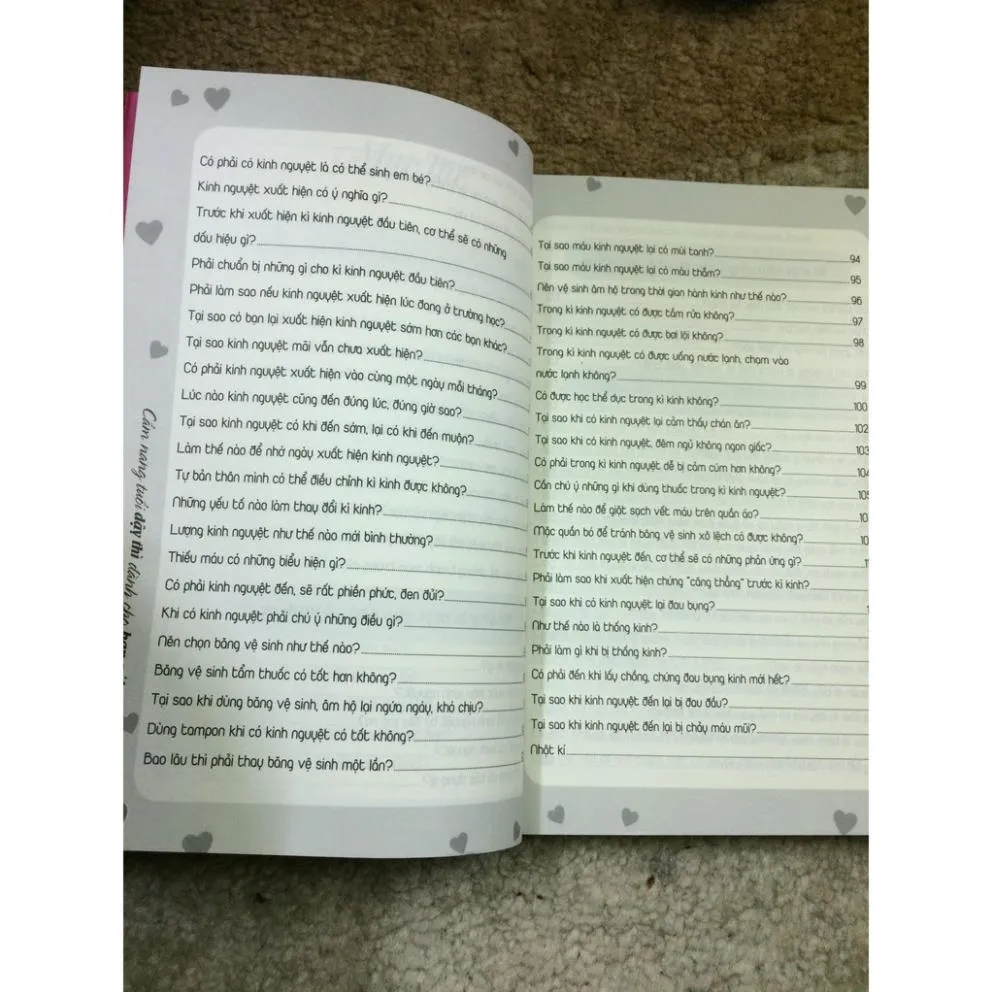 Có phải có kinh nguyệt là có thể sinh em bé?
Kinh nguyệt xuất hiện có ý nghĩa gì?
Trước khi xuất hiện kì kinh nguyệt đầu tiên, cơ thể sẽ có những
dấu hiệu gì?
Phải chuẩn bị những gì cho kì kinh nguyệt đầu tiên?
Phải làm sao nếu kinh nguyệt xuất hiện lúc đang ở trường học?
Tại sao có bạn lại xuất hiện kinh nguyệt sớm hơn các bạn khác?
Tại sao kinh nguyệt mãi vẫn chưa xuất hiện?
Có phải kinh nguyệt xuất hiện vào cùng một ngày mỗi tháng?
Lúc nào kinh nguyệt cũng đến đúng lúc, đúng giờ sao?
Tại sao kinh nguyệt có khi đến sớm, lại có khi đến muộn?
Làm thế nào để nhớ ngày xuất hiện kinh nguyệt?
Tự bản thân mình có thể điều chỉnh kì kinh được không?
Những yếu tố nào làm thay đổi kì kinh?
Lượng kinh nguyệt như thế nào mới bình thường?
Thiếu máu có những biểu hiện gì?
Có phải kinh nguyệt đến, sẽ rất phiền phức, đen đủi?
Khi có kinh nguyệt phải chú ý những điều gì?
Nên chọn băng vệ sinh như thế nào?
Băng vệ sinh tẩm thuốc có tốt hơn không?
Tại sao khi dùng băng vệ sinh, âm hộ lại ngứa ngáy, khó chịu?
Dùng tampon khi có kinh nguyệt có tốt không?
Bao lâu thì phải thay băng vệ sinh một lần?
Cẩm nang tuổi dậy thì dành cho
Tại sao máu kinh nguyệt lại có mùi tanh? 94
Tại sao máu kinh nguyệt lại có màu thẫm? 95
Nên vệ sinh âm hộ trong thời gian hành kinh như thế nào? 96
Trong kì kinh nguyệt có được tắm rửa không? 97
Trong kì kinh nguyệt có được bơi lội không? 98
Trong kì kinh nguyệt có được uống nước lạnh, chạm vào
nước lạnh không? 99
Có được học thể dục trong kì kinh không? 100
Tại sao khi có kinh nguyệt lại cảm thấy chán ăn? 102
Tại sao khi có kinh nguyệt, đêm ngủ không ngon giấc? 103
Có phải trong kì kinh nguyệt dễ bị cảm cúm hơn không? 104
Cần chú ý những gì khi dùng thuốc trong kì kinh nguyệt? 105
Làm thế nào để giặt sạch vết máu trên quần áo? 10
Mặc quần bó để tránh băng vệ sinh xô lệch có được không? 10
Trước khi kinh nguyệt đến, cơ thể sẽ có những phản ứng gì? 1
Phải làm sao khi xuất hiện chứng "căng thẳng" trước kì kinh?
Tại sao khi có kinh nguyệt lại đau bụng? 1
Như thế nào là thống kinh?
Phải làm gì khi bị thống kinh?
Có phải đến khi lấy chồng, chứng đau bụng kinh mới hết?
Tại sao khi kinh nguyệt đến lại bị đau đầu?
Tại sao khi kinh nguyệt đến lại bị chảy máu mũi?
Nhật kí